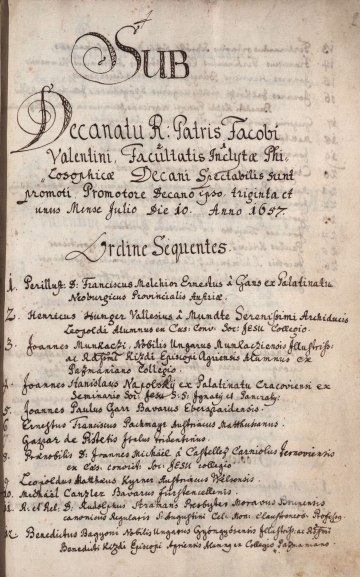 SUB
Decanatu R. Patris Jacobi
Valentini, Facultatis Inclytæ Phi-
losophicæ Decani Spectabilis sunt
promoti, Promotore Decano ipso triginta et
unus Mense Julio Die 10. Anno 1657.
Ordine Sequentes.
1. Perillust: D: Franciscus Melchior Ernestus à Gans ex Palatinatu
Neoburgicus Provincialis Austriæ.
2. Henricus Hunger Vallesius à Mundte Serenissimi Archiducis
Leopoldi Alumnus ex Cæs: Conv: Soc: JESU Collegio.
3. Joannes Munkaczi Nobilis Ungarus Munkacziensis Illustriss:
ac Kisdi Episcopi Agriensis Alumnus ex
Pazmaniano Collegio.
4. Joannes Stanislaus Napolsky ex Palatinatu Cracoviensi ex
Seminario Soc: JESU S: S: Ignatij et Pancratij.
5. Joannes Paulus Garr Bavarus
6. Ernestus Franciscus Pachmayr Austriacus
7. Gaspar de Tridentinus.
8. Prænobilis D: Joannes Michaël à Castelley Carniolus
ex Cæs: convict: Soc: JESU collegio.
9. Leopoldus Matthæus Kyrner Austriacus Welsensis.
10. Michaël Canzler Bavarus Fürstencellensis.
11. R. et Rel: D: Rudolphus Moravus Brunensis
canonicus Regularis S: Augustini Professus.
12. Benedictus Bagyoni Nobilis Ungarus Gyöngyösensis Illustriss: ac
Benedicti Kisdi Episcopi Agriensis Alumnus Collegio Pazmaniano.